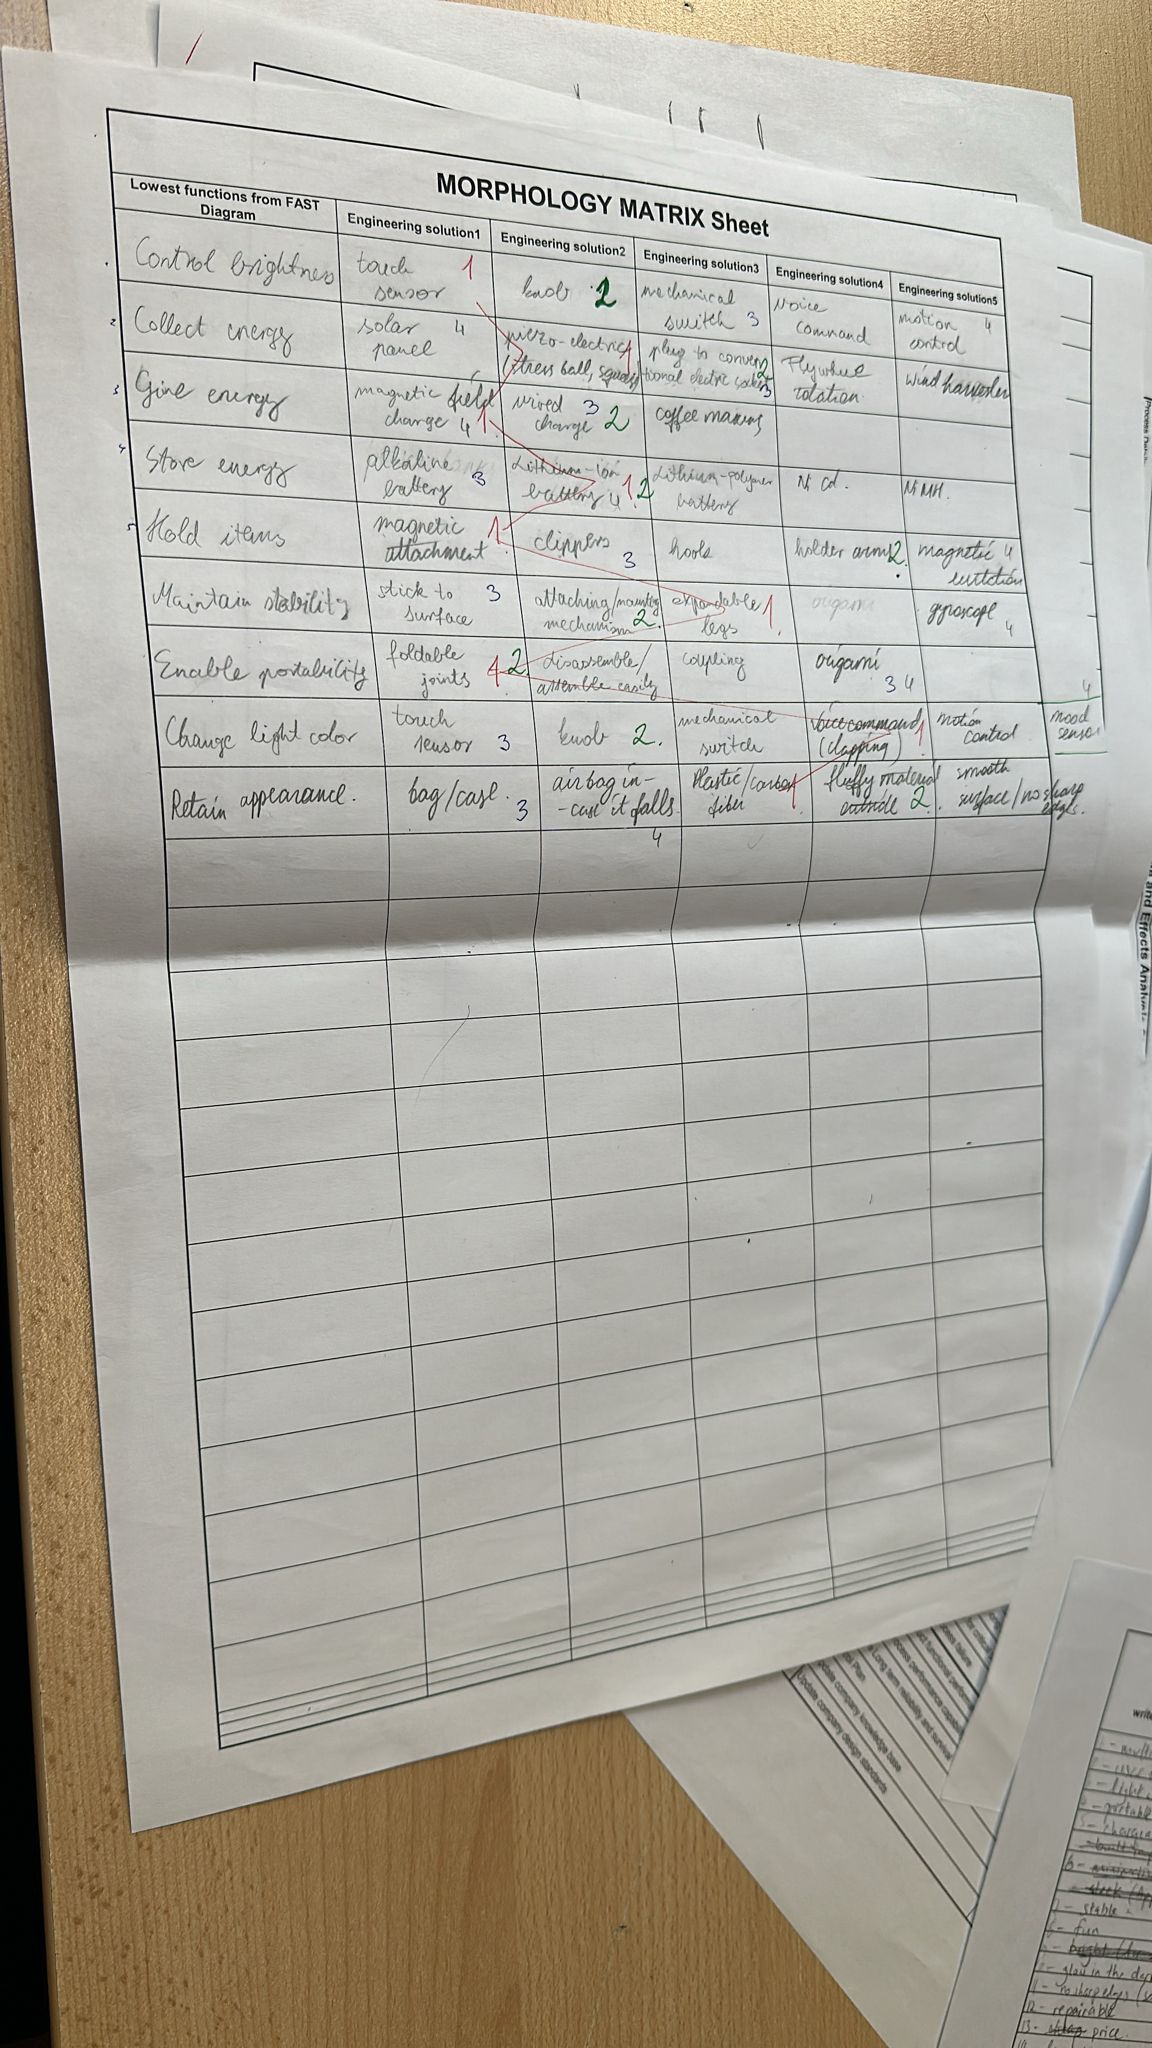 MORPHOLOGY MATRIX Sheet
Lowest functions from FAST
Diagram
Engineering solution1
Engineering solution2
Engineering solution3
Engineering solution4
Engineering solution5
Control brightness
touch 1
sensor
knob 2
mechanical
switch 3
voice
command
motion 4
control
2
Collect energy
solar 4
panel
piezo-electric 1
(stress ball,
plug to conven 2
tional electric socket 3
Flywheel
rotation
wind harvester
3
Give energy
magnetic field
charge 4 1
wired 3
charge 2
coffee making
4
Store energy
alkaline
battery 3
Lithium-ion
battery 4 1 2
Lithium-polymer
battery
Ni Cd.
NiMH.
5
Hold items
magnetic 1
attachment
clippers
3
hook
holder arm 2.
magnetic 4
Maintain stability
stick to 3
surface
attaching/mounting
mechanism 2.
expandable 1
legs
origami
gyroscope
4
Enable portability
foldable 1 2.
joints
disassemble/
assemble easily
coupling
origami
3 4
Change light color
touch
sensor 3
knob 2.
mechanical
switch
voice command 1
(clapping)
motion
control
4
mood
sensor
Retain appearance.
bag/case.
3
airbag in-
-case it falls
4
Plastic/carbon 1
fiber
fluffy material
outside 2.
smooth
surface/no sharp
edges.
and Effects Analysis
Long term reliability and survival
Update company knowledge base
Update company design standards
- portable
- stable
- fun
- glow in the dark
12- repairable
13- price.